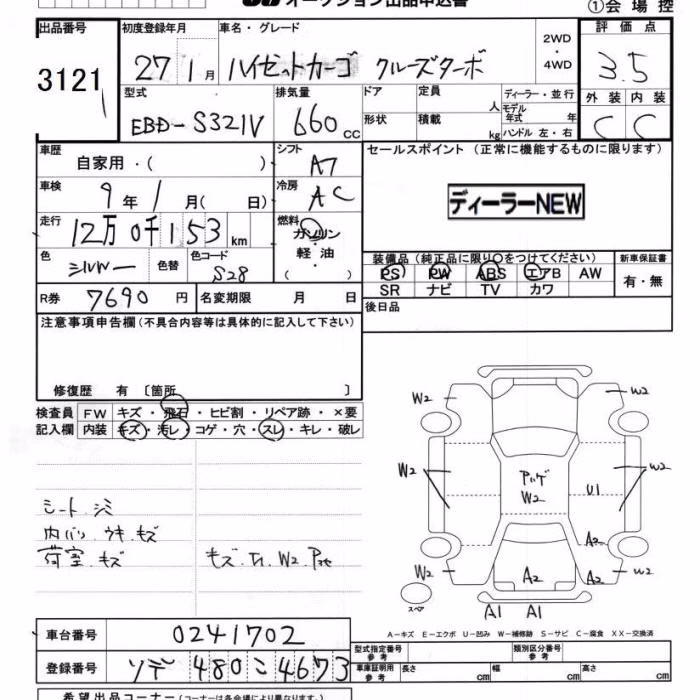 オークション出品申込書
①会場控
出品番号 3121
初度登録年月 27 1月
車名・グレード ハイゼットカーゴ クルーズターボ
2WD・4WD
評価点 3.5
外装 C 内装 C
型式 EBD-S321V
排気量 660cc
ドア 定員 人
ディーラー・並行
形状 積載 kg
モデル年式 年
ハンドル 左・右
車歴 自家用・( )
シフト AT
セールスポイント (正常に機能するものに限ります)
ディーラーNEW
車検 9年1月(日)
冷房 AC
走行 12万0千153km
燃料 ガソリン 軽油・( )
色 シルバー 色替 色コード S28
装備品(純正品に限り○をつけてください) 新車保証書
PS PW ABS エアB AW
有・無
SR ナビ TV カワ
R券 7690円 名変期限 月 日
後日品
注意事項申告欄(不具合内容等は具体的に記入して下さい)
修復歴 有 〔箇所 〕
検査員 FW キズ・飛石・ヒビ割・リペア跡・×要
記入欄 内装 キズ・汚レ・コゲ・穴・スレ・キレ・破レ
シート.シミ
内バリ.ウキ.キズ
荷室.キズ
W2 W2
W2 W2
W2
U1
A2
W2 A2 A2 W2
スペア
A1 A1
A-キズ E-エクボ U-凹み W-補修跡 S-サビ C-腐食 XX-交換済
車台番号 0241702
登録番号 480 こ 4673
型式指定番号 参考 類別区分番号 参考
車庫証明用 参考 長さ cm 幅 cm 高さ cm
希望出品コーナー(コーナーは各会場により異なります)